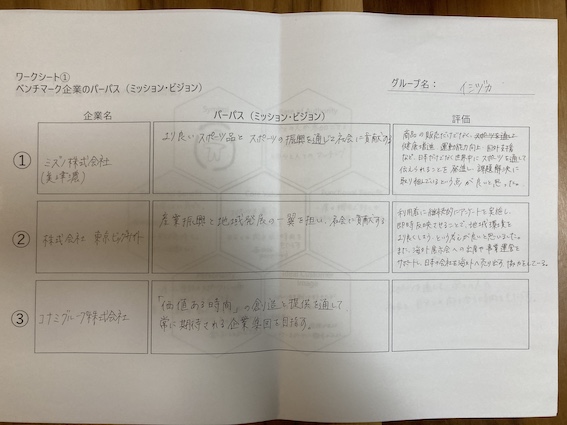 ワークシート①
ベンチマーク企業のパーパス（ミッション・ビジョン）
グループ名： イシヅカ
企業名
パーパス（ミッション・ビジョン）
評価
①
ミズノ株式会社
(美津濃)
より良いスポーツ品とスポーツの振興を通じて社会に貢献する
商品の販売だけでなく、スポーツを通して
健康増進、運動能力向上、
など、日本だけでなく世界中にスポーツを通して
伝えられることを発信し、課題解決に
取り組んでいるという点が良いと思った。
②
株式会社 東京ビッグサイト
産業振興と地域発展の一翼を担い、社会に貢献する
利用者に継続的にアンケートを実施し、
即時反映させることで、地域環境を
より良くしようという点が良いと思いました。
また、海外展示会への出展や事業運営を
サポートし、日本の会社を海外へ売り出す
③
コナミグループ株式会社
「価値ある時間」の創造と提供を通して、
常に期待される企業集団を目指す。